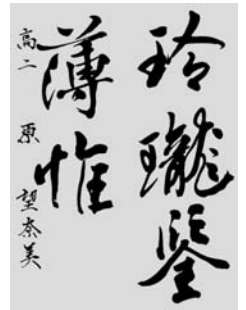 玲瓏鑒
薄惟
高二 原 望奈美